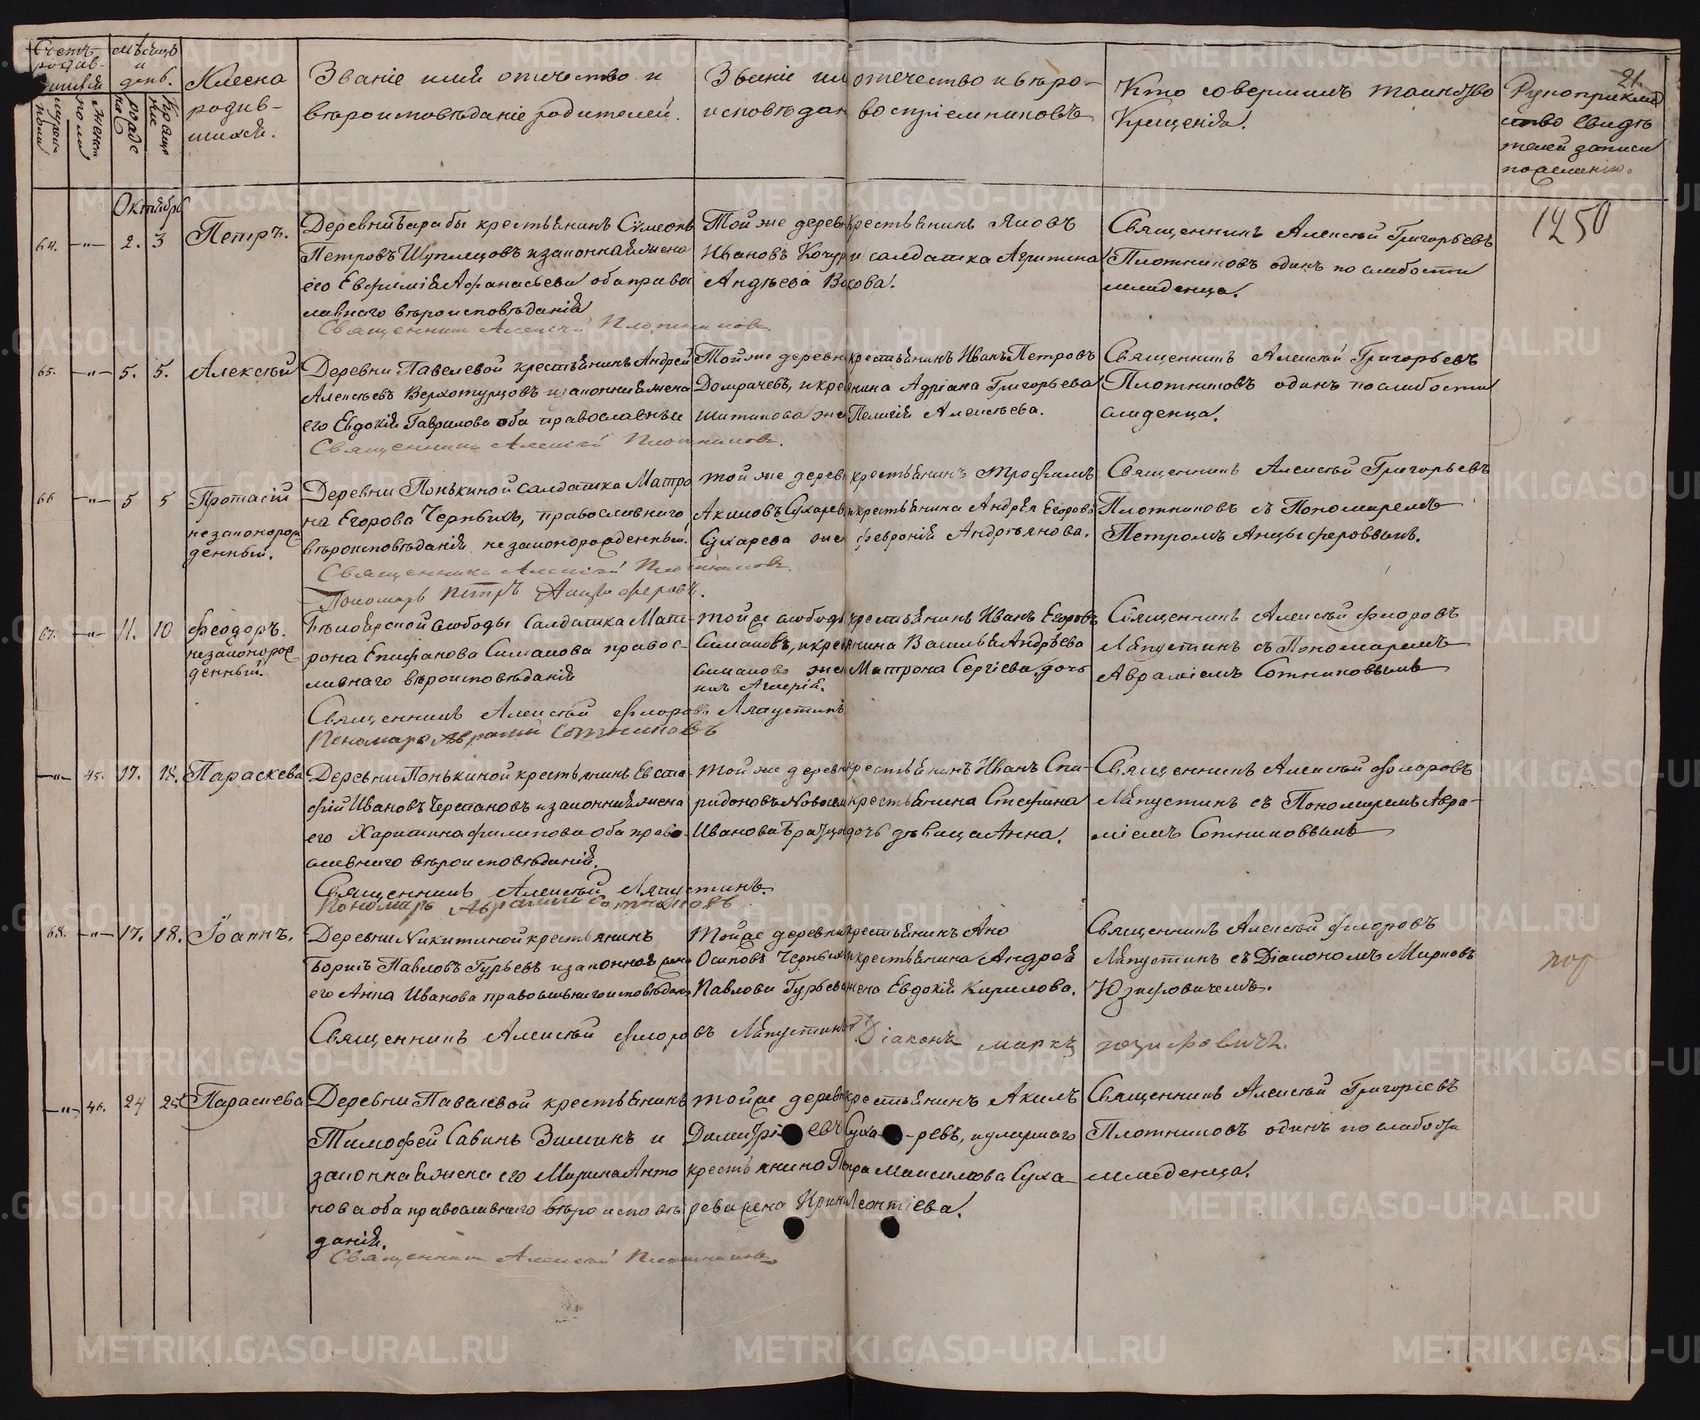 Счетъ родившихся
мѣсяцъ и день.
Имена родившихся.
Званіе имя отчество и вѣроисповѣданіе родителей.
Званіе имя отчество и вѣроисповѣдан воспріемниковъ
Кто совершилъ таинство Крещенія.
Рукоприкладство свидѣтелей записи по желанію.
21.
Октябрь
64. —"— 2. 3 Петръ.
Деревни Барабы крестьянинъ Сѵмеонъ
Петровъ Шуплецовъ и законная жена
его Евфимія Афанасьева оба православнаго вѣроисповѣданія
Священникъ Алексѣй Плотниковъ
Той же деревни крестьянинъ Яковъ
Ивановъ и солдатка Агрипина
Андреева
Священникъ Алексѣй Григорьевъ
Плотниковъ одинъ по слабости
младенца.
1250
65. —"— 5. 5. Алексѣй
Деревни Павелевой крестьянинъ Андрей
Алексѣевъ Верхотурцовъ и законная жена
его Евдокія Гаврилова оба православные
Священникъ Алексѣй Плотниковъ.
Той же деревни крестьянинъ Иванъ Петровъ
Домрачевъ, и крестьянина Адріана Григорьева
жена Пелагія Алексѣева.
Священникъ Алексѣй Григорьевъ
Плотниковъ одинъ по слабости
младенца.
66 —"— 5 5 Протасій
незаконорожденный.
Деревни Понькиной солдатка Матрона Егорова Черныхъ, православнаго
вѣроисповѣданія незаконорожденный.
Священникъ Алексѣй Плотниковъ.
Пономарь Петръ Анцыферовъ.
той же деревни крестьянинъ Трофимъ
Акимовъ Сухаревъ и крестьянина Андрея Егорова
Сухарева жена Февронія Андреянова.
Священникъ Алексѣй Григорьевъ
Плотниковъ съ Пономаремъ
Петромъ Анцыферовымъ.
67. —"— 11. 10 Феодоръ.
незаконорожденный.
Бѣлоярской слободы солдатка Матрона Епифанова Симакова православнаго вѣроисповѣданія
Священникъ Алексѣй Флоровъ Ляпустинъ
Пономарь Аврамій Сотниковъ
той же слободы крестьянинъ Иванъ Егоровъ
Симаковъ, и крестьянина Василья Андрѣева
Симакова жена Матрона Сергіева дочь
Священникъ Алексѣй Флоровъ
Ляпустинъ съ Пономаремъ
Авраміемъ Сотниковымъ
—"— 45. 17. 18. Параскева
Деревни Понькиной крестьянинъ Евстафій Ивановъ Черепановъ и законная жена
его Харитина Филипова оба православнаго вѣроисповѣданія.
Священникъ Алексѣй Ляпустинъ.
Пономарь Аврамій Сотниковъ
той же деревни крестьянинъ Иванъ Спиридоновъ крестьянина Стефана
Иванова дочь дѣвица Анна.
Священникъ Алексѣй Флоровъ
Ляпустинъ съ Пономаремъ Авраміемъ Сотниковымъ
68. —"— 17. 18. Іоаннъ.
Деревни Никитиной крестьянинъ
Борисъ Павловъ Гурьевъ и законная жена
его Анна Иванова православнаго исповѣданія
Священникъ Алексѣй Флоровъ Ляпустинъ Діаконъ Маркъ Юзефовичъ.
той же деревни крестьянинъ
Осиповъ Черныхъ и крестьянина Андрея
Павлова Гурьева жена Евдокія Кирилова.
Священникъ Алексѣй Флоровъ
Ляпустинъ съ Діакономъ Маркомъ
Юзефовичемъ.
—"— 46. 24 25 Параскева
Деревни Павелевой крестьянинъ
Тимофей Савинъ Зиминъ и
законная жена его Марина Антонова оба православнаго вѣроисповѣданія.
Священникъ Алексѣй Плотниковъ
той же деревни крестьянинъ Акимъ
Димитріевъ Сухаревъ, и умершаго
крестьянина Петра Максимова Сухарева жена Ирина Леонтіева.
Священникъ Алексѣй Григоріевъ
Плотниковъ одинъ по слабости
младенца.
METRIKI.GASO-URAL.RU